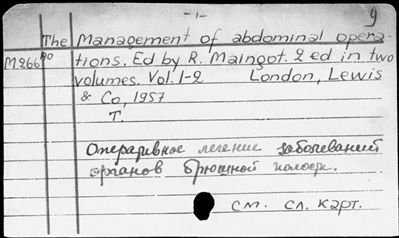 -1-
9
The Management of abdominal opera-
M266 90 tions. Ed by R. Maingot. 2 ed in two
volumes. Vol. 1-2 London, Lewis
& Co, 1957
T.
Оперативное лечение заболеваний
органов брюшной полости.
см. сл. карт.